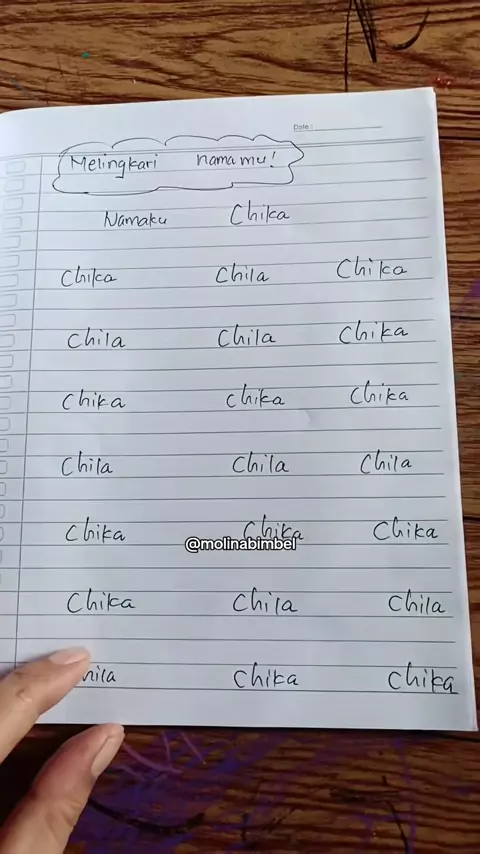 Date:
Melingkari nama mu!
Namaku Chika
Chika Chila Chika
Chila Chila Chika
Chika Chika Chika
Chila Chila Chila
Chika Chika Chika
@molinabimbel
Chika Chila Chila
Chika Chika